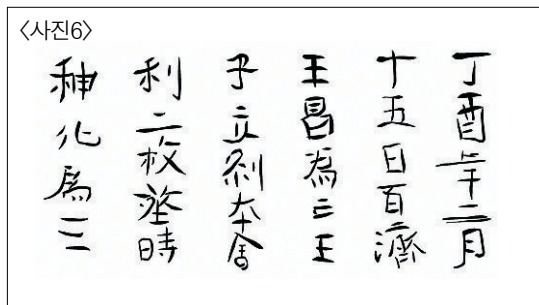 〈사진6〉
丁酉年二月
十五日百濟
王昌為亡王
子立刹夲舍
利二枚葬時
神化爲三